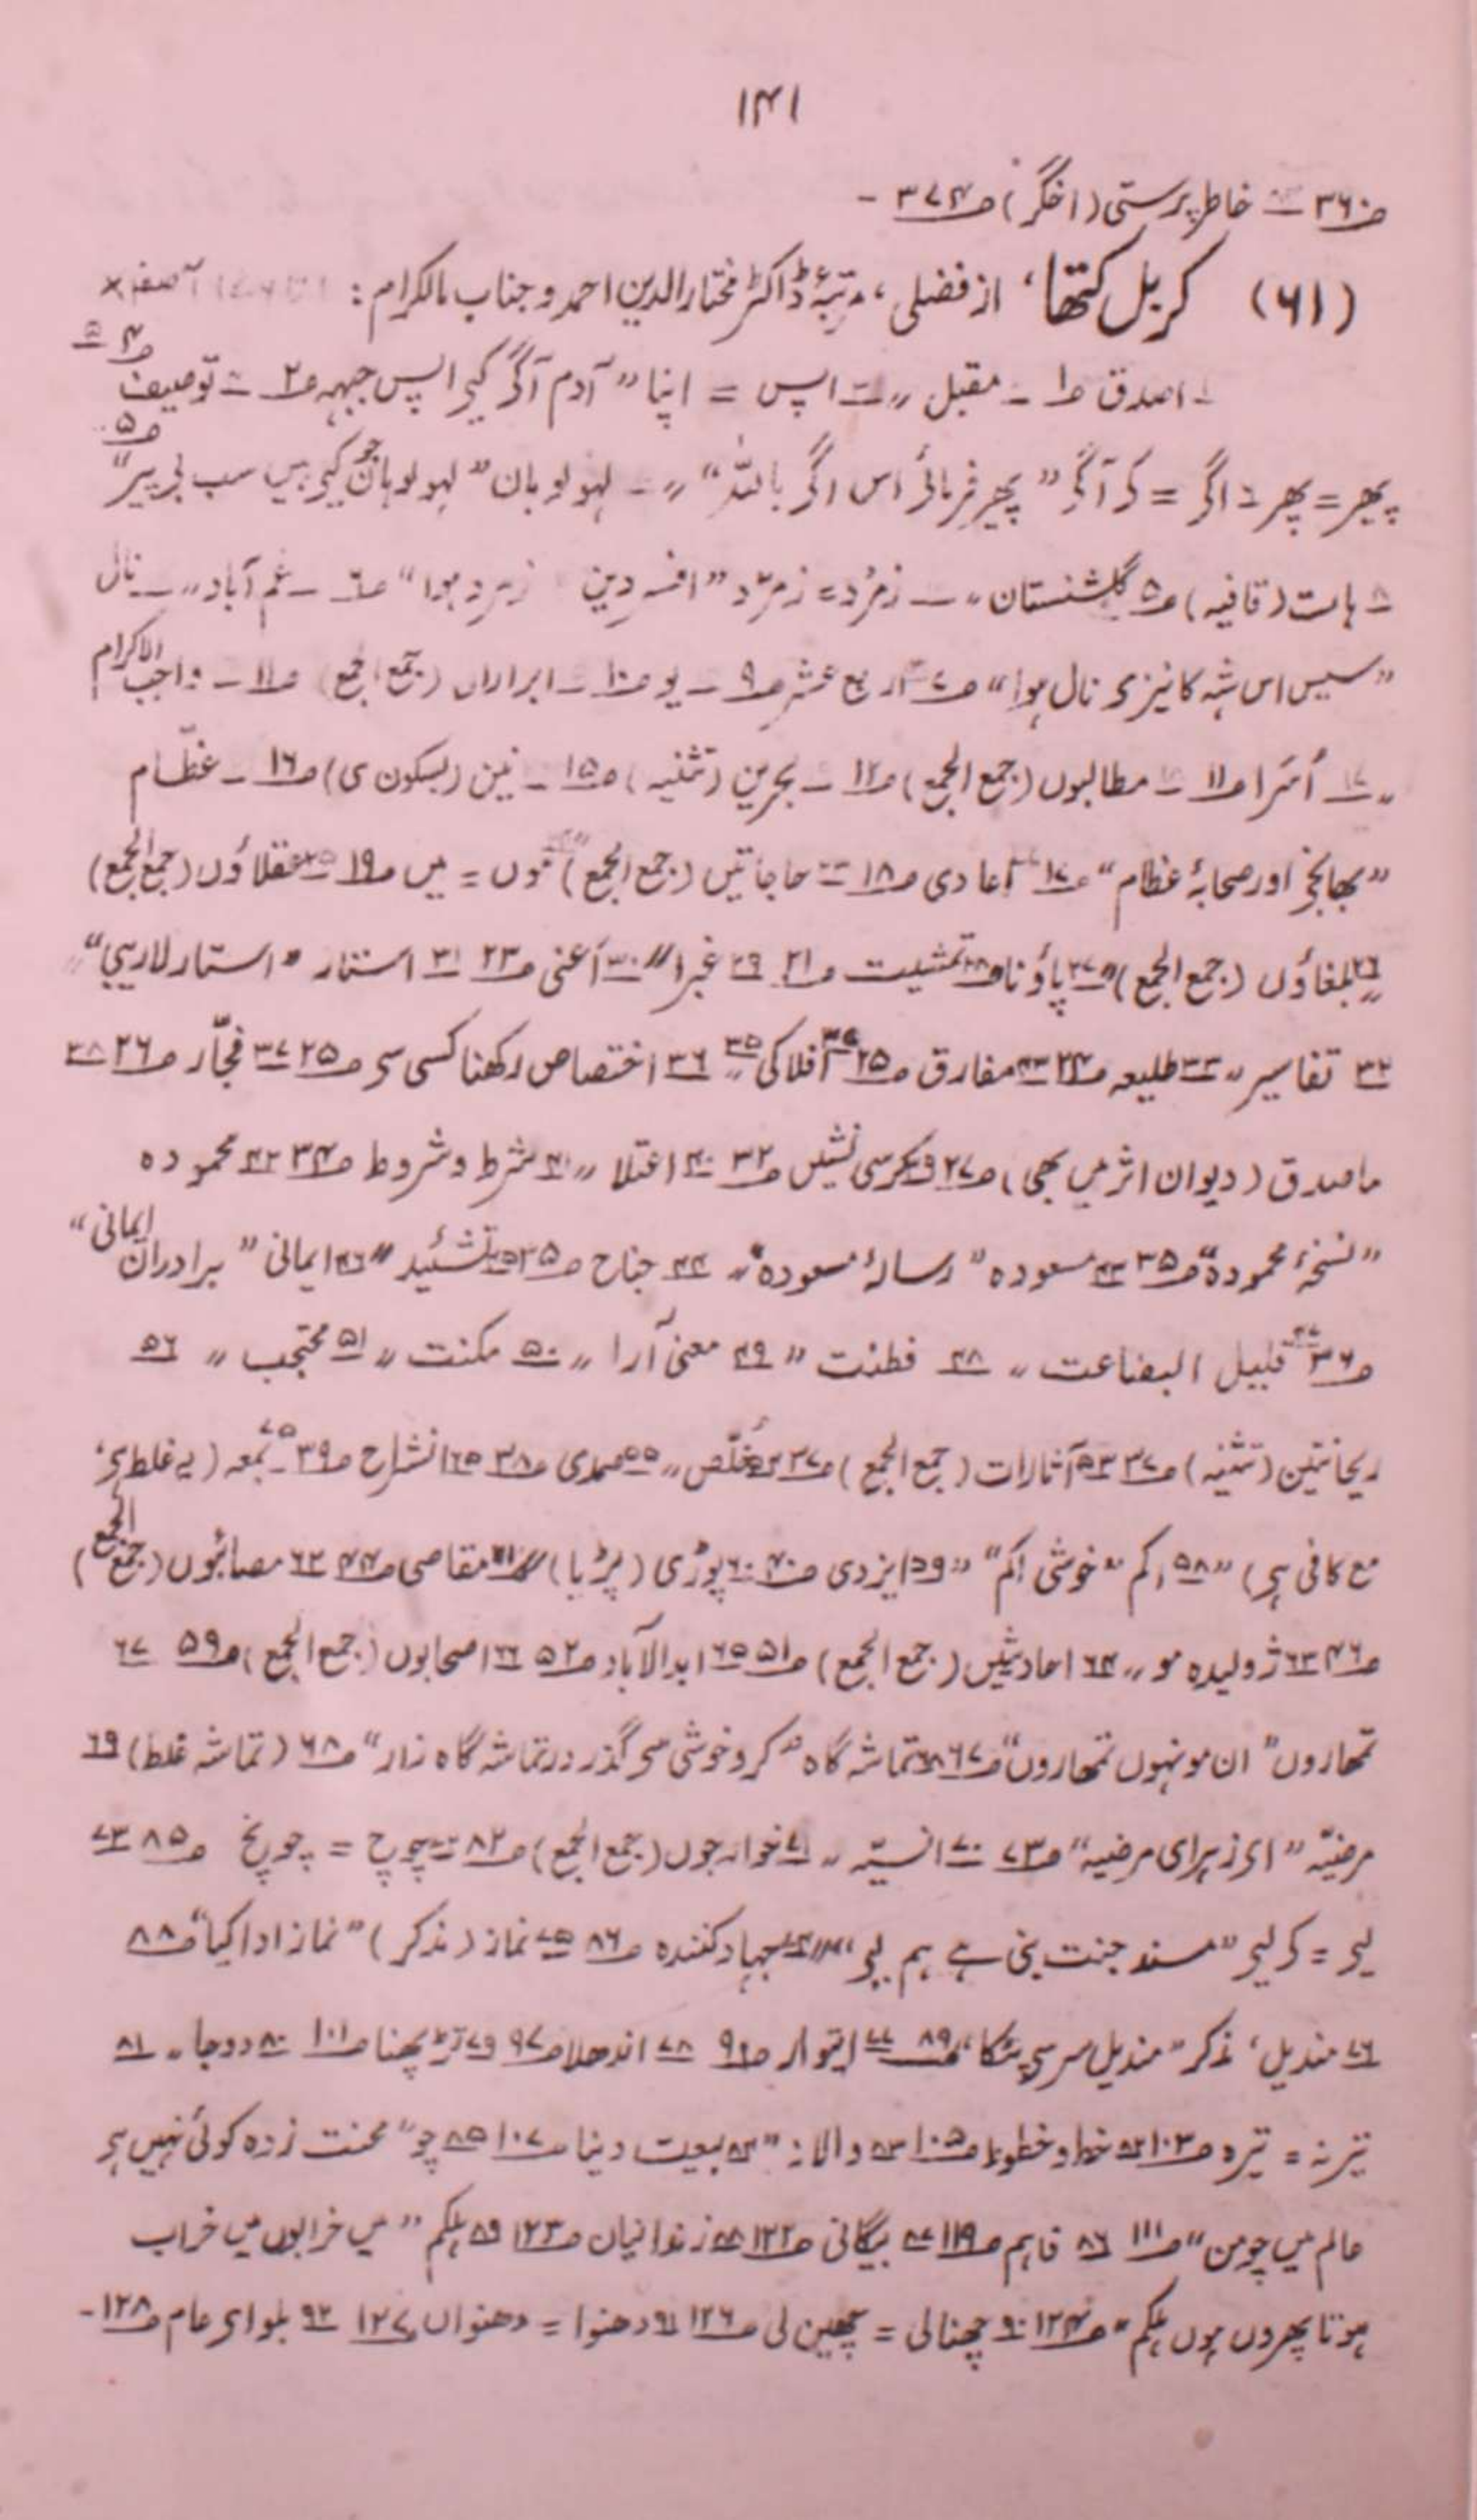 ۱۴۱
ص۳۶۰ خاطر پرستی (اخگر) ص۳۷۴ -
(۶۱) کربل کتھا، از فضلی، مرتبۂ ڈاکٹر مختار الدین احمد و جناب مالک رام :
اصدق ص۱ - مقبل " اپس = اپنا "آدم آگے کیے اپس جبہہ ص۲ - توصیف ص۴
پھیر = پھر اگے = کے آگے "پھیر فرمائے اس اگے باللہ" " لہو لوہان "لہو لوہان جو کیے ہیں سب بے پیر" ص۵
ہات (قافیہ) ص۵ گلشنستان " زمرد = زمرّد " زمرد ہوا" ص۶ - غم آباد " نال
"سیس اس شہ کا نیزے نال ہوا" ص۷ اربع عشر ص۹ - یو ص۱۰ - ابراراں (جمع الجمع) ص۱۱ - واجب الاکرام
" ۱۷ اُسَرا ص۱۱ مطالبوں (جمع الجمع) ص۱۲ - بحرین (تثنیہ) ص۱۵ - نین (بسکون ی) ص۱۶ - عظّام
"بھانجے اور صحابۂ عظام" ص۱۷ اعادی ص۱۸ حاجاتیں (جمع الجمع) موں = میں ص۱۹ ۲۵ عقلاؤں (جمع الجمع)
۲۶ بلغاؤں (جمع الجمع) " ۲۷ پاؤنا ص ۲۸ تمشیت ص۲۱ ۲۹ غبرا " ۳۰ اعنی ص۲۳ ۳۱ استتار " استار لاریبی"
۳۲ تفاسیر " ۳۳ طلیعہ ص۲۴ مفارق ص۲۵ افلاکی ۳۵ " ۳۶ اختصاص رکھنا کسی سے ص۲۵ ۳۷ فجّار ص۲۶ ۳۸
ماصدق (دیوان اثر میں بھی) ص۲۷ ۳۹ کرسی نشیں ص۳۲ ۴۰ اعتلا " ۴۱ شرط و شروط ص۳۴ ۴۲ محمودہ
"نسخۂ محمودہ" ص۳۵ ۴۳ مسعودہ "رسالۂ مسعودہ" " ۴۴ جناح ص۳۵ ۴۵ تشئید " ۴۶ ایمانی "برادران ایمانی"
ص۳۶ ۴۷ قلیل البضاعت " ۴۸ فطنت " ۴۹ معنی آرا " ۵۰ مکنت " ۵۱ محتجب " ۵۲
ریحانتین (تثنیہ) ص۳۷ ۵۳ آثارات (جمع الجمع) ص۳۷ ۵۴ مُخلّص " ۵۵ ممدی ص۳۸ ۵۶ انشراح ص۳۹ ۵۷ بمعہ (یہ غلط ہے،
مع کافی ہے) " ۵۸ اکم "خوشی اکم" " ۵۹ ایزدی ص۴۰ ۶۰ پوڑی (پڑیا) ۶۱ مقاصی ص۴۴ ۶۲ مصائبوں (جمع الجمع)
ص۴۶ ۶۳ ژولیدہ مو " ۶۴ احادیثیں (جمع الجمع) ص۵۱ ۶۵ ابدالآباد ص۵۲ ۶۶ اصحابوں (جمع الجمع) ص۵۹ ۶۷
تمھاروں "ان مونہوں تمھاروں" ص۶۷ ۶۸ تماشہ گاہ "کرو خوشی سے گذر در تماشہ گاہ زار" ص۶۸ (تماشہ غلط) ۶۹
مرضیّہ "اے زہرای مرضیہ" ص۷۳ ۷۰ انسیّہ " ۷۱ خوارجوں (جمع الجمع) ص۸۲ ۷۲ چوچ = چونچ ص۸۵ ۷۳
لیے = کے لیے "مسند جنت بنی ہے ہم لیے" " ۷۴ جہاد کنندہ ص۸۶ ۷۵ نماز (مذکر) "نماز ادا کیا" ص۸۸
۷۶ مندیل، مذکر "مندیل سر سے پٹکا" ص۸۹ ۷۷ ایتوار ص۹۱ ۷۸ اندھلا ص۹۷ ۷۹ تڑپھنا ص۱۰۱ ۸۰ دوجا " ۸۱
تیرنہ = تیرہ ص۱۰۳ ۸۲ خط و خطوط ص۱۰۵ ۸۳ والانہ " ۸۴ بیعت دینا ص۱۰۷ ۸۵ چو "محنت زدہ کوئی نہیں ہے
عالم میں چو من" ص۱۱۱ ۸۶ فاہم ص۱۱۹ ۸۷ بیگانی ص۱۲۲ ۸۸ زندانیان ص۱۲۳ ۸۹ ہلکم "میں خرابوں میں خراب
ہوتا پھروں ہوں ہلکم" ص۱۲۴ ۹۰ چھنالی = چھین لی ص۱۲۶ ۹۱ دھنوا = دھنواں ص۱۲۷ ۹۲ بلوای عام ص۱۲۸ -